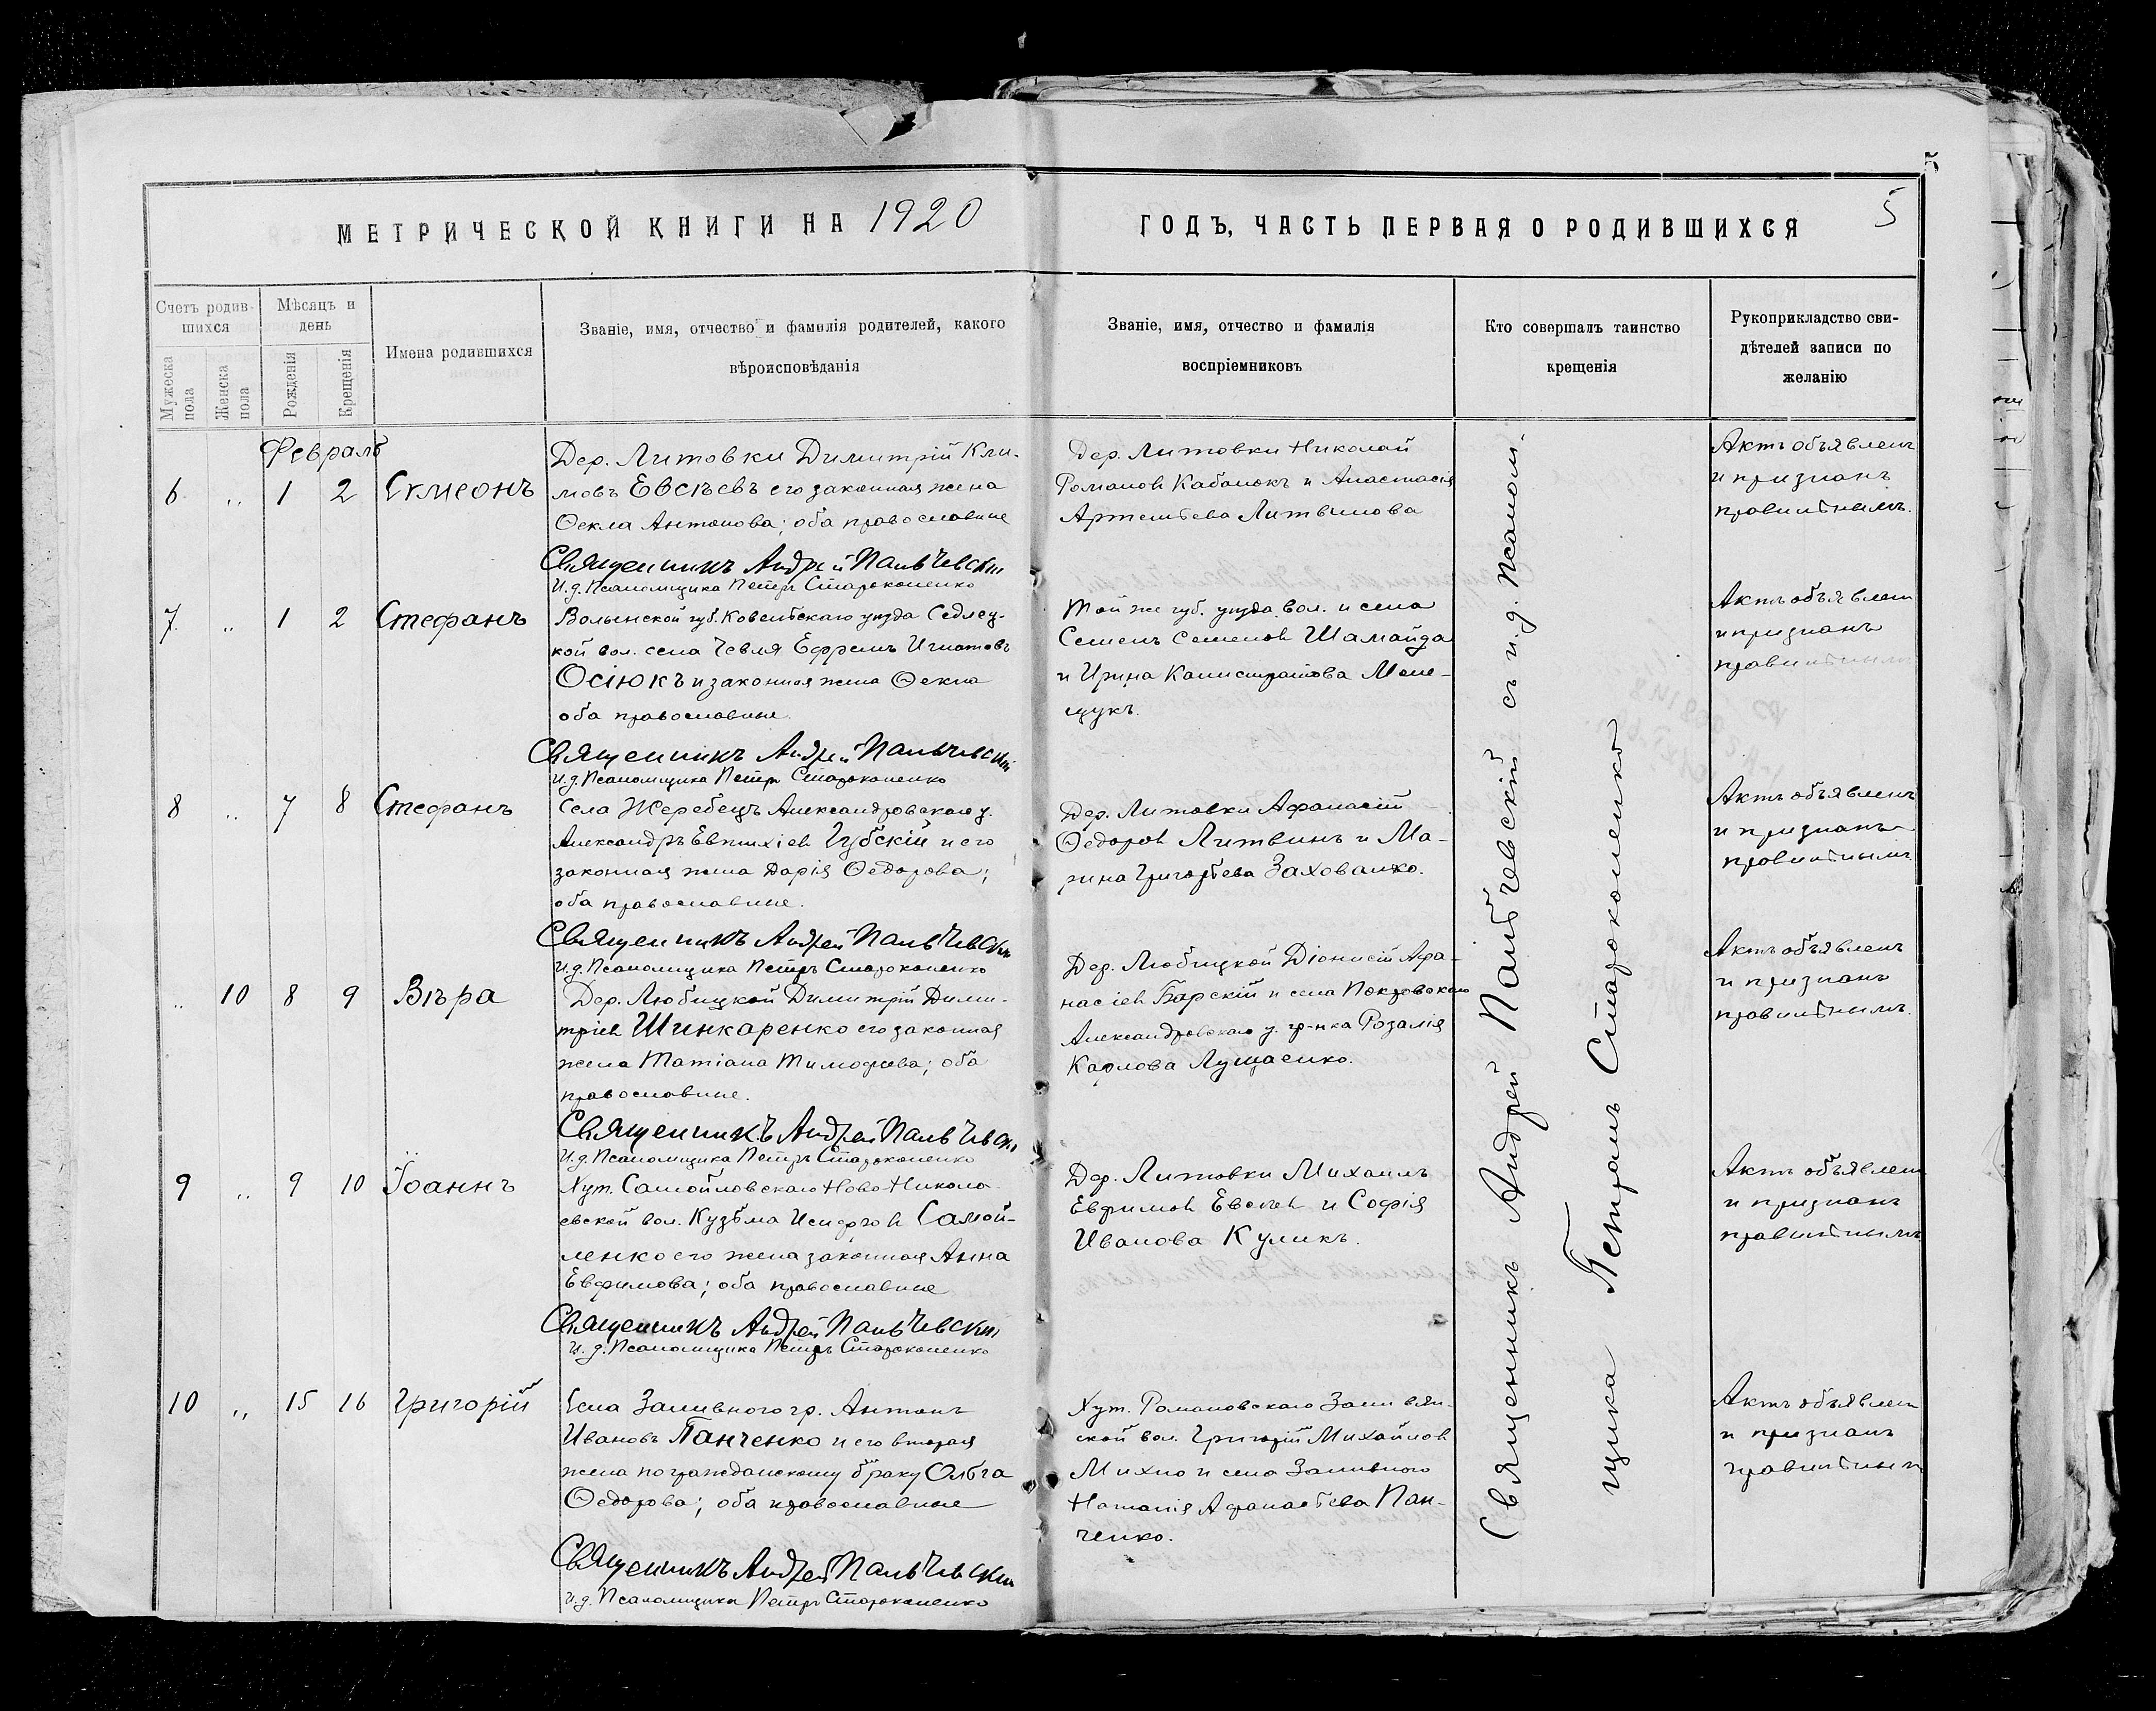 МЕТРИЧЕСКОЙ КНИГИ НА 1920
ГОДЪ, ЧАСТЬ ПЕРВАЯ О РОДИВШИХСЯ
5
Счетъ родив-
шихся
Мужеска
пола
Женска
пола
Мѣсяцъ и
день
Рожденія
Крещенія
Имена родившихся
Званіе, имя, отчество и фамилія родителей, какого
вѣроисповѣданія
Званіе, имя, отчество и фамилія
воспріемниковъ
Кто совершалъ таинство
крещенія
Рукоприкладство сви-
дѣтелей записи по
желанію
Февраль
6 „ 1 2 Симеонъ
Дер. Литовки Димитрій Кли-
мовъ Евсѣевъ его законная жена
Ѳекла Антонова; оба православные
Священникъ Андрей Пальчевскій
И.д. Псаломщика Петръ Староконенко
Дер. Литовки Николай
Романов Кабанокъ и Анастасія
Артемьева Литвинова
Актъ объявленъ
и признанъ
правильнымъ.
7. „ 1 2 Стефанъ
Волынской губ. Ковельскаго уѣзда Седлец-
кой вол. села Чевля Ефремъ Игнатовъ
Осіюкъ и законная жена Ѳекла
оба православные.
Священникъ Андрей Пальчевскій
И.д. Псаломщика Петръ Староконенко
Той же губ. уѣзда, вол. и села
Семенъ Семенов Шамайда
и Ирина Калистратова Меле-
щукъ.
Актъ объявленъ
и признанъ
правильнымъ
8 „ 7 8 Стефанъ
Села Жеребецъ Александровскаго у.
Александръ Евтихіев Губскій и его
законная жена Дарія Ѳедорова;
оба православные.
Священникъ Андрей Пальчевскій
И.д. Псаломщика Петръ Староконенко
Дер. Литовки Афанасій
Ѳедоров Литвинъ и Ма-
рина Григорьева Захованко.
Актъ объявленъ
и признанъ
правильнымъ
„ 10 8 9 Вѣра
Дер. Любицкой Димитрій Дими-
тріев Шинкаренко его законная
жена Татіана Тимофеева; оба
православные.
Священникъ Андрей Пальчевскій
И.д. Псаломщика Петръ Староконенко
Дер. Любицкой Діонисій Афа-
насіев Барскій и села Покровскаго
Александровскаго у. гр-нка Розалія
Карлова Лущаенко.
Актъ объявленъ
и признанъ
правильнымъ.
9 „ 9 10 Іоаннъ
Хут. Самойловскаго Ново-Никола-
евской вол. Кузьма Исидоров Самой-
ленко его жена законная Анна
Евфимова; оба православные
Священникъ Андрей Пальчевскій
И.д. Псаломщика Петръ Староконенко
Дер. Литовки Михаилъ
Евфимов Евсеев и Софія
Иванова Куликъ.
Актъ объявленъ
и признанъ
правильнымъ
10 „ 15 16 Григорій
Села Заливного гр. Антонъ
Ивановъ Панченко и его вторая
жена по гражданскому браку Ольга
Ѳедорова; оба православные
Священникъ Андрей Пальчевскій
И.д. Псаломщика Петръ Староконенко
Хут. Романовскаго Заливян-
ской вол. Григорій Михайлов
Михно и села Заливного
Наталія Афанасьева Пан-
ченко.
Актъ объявленъ
и признанъ
правильнымъ
Священникъ Андрей Пальчевскій съ и.д. Псалом-
щика Петромъ Староконенко